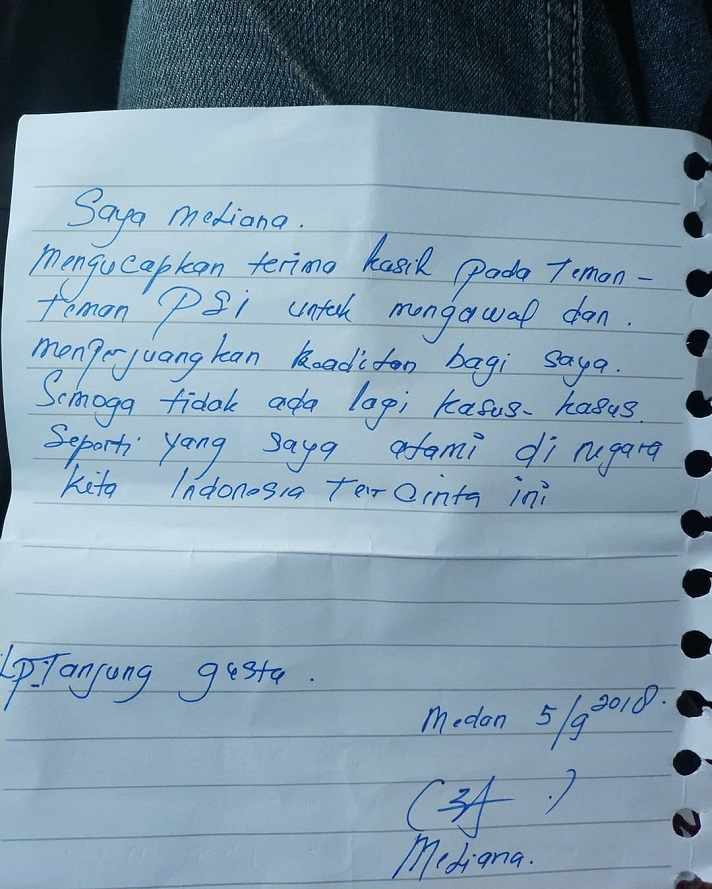 Saya Mediana.
Mengucapkan terima kasih pada Teman-
teman PSi untuk mengawal dan.
memperjuangkan keadilan bagi saya.
Semoga tidak ada lagi kasus-kasus.
Seperti yang saya alami di negara
kita Indonesia TerCinta ini
Lp.Tanjung gusta.
Medan 5/9 2018.
Mediana.